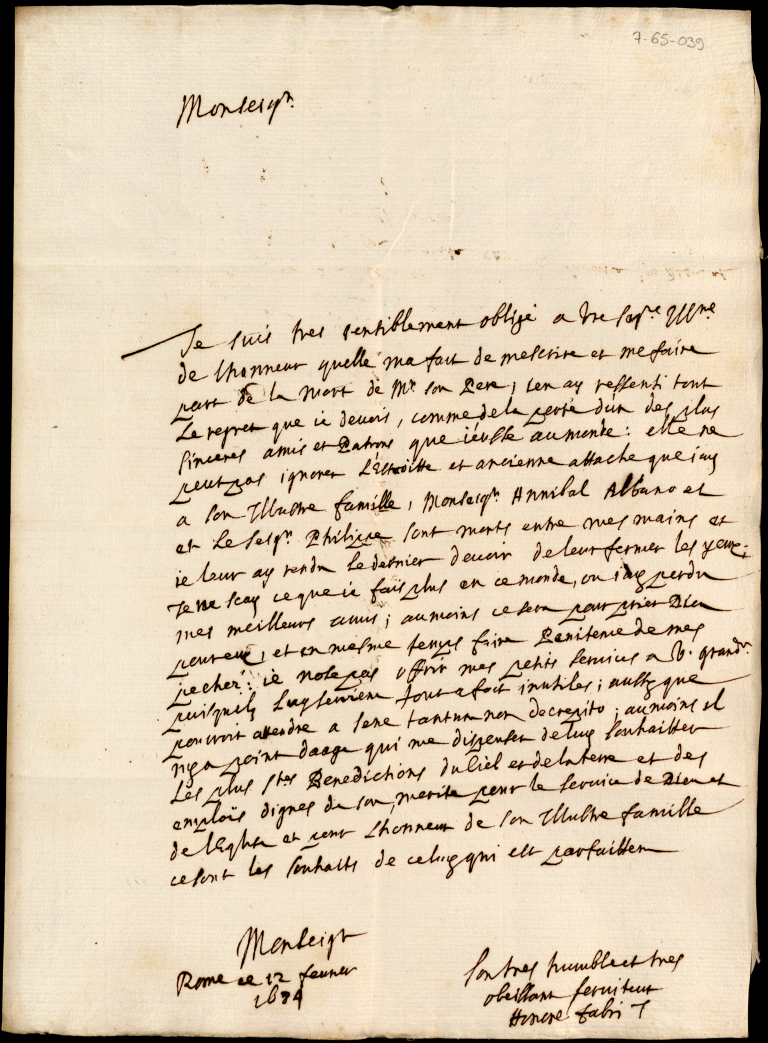 7-65-039
Monseigr.
Je suis tres sensiblement obligé a vre Seig.re Ill.me
de lhonneur quelle ma fait de mescrire et me faire
part de la mort de Mr son Pere, ien ay ressenti tout
le regret que ie devois, comme de la perte d'un des plus
sinceres amis et Patrons que i'eusse au monde: elle ne
peut pas ignorer l'estroitte et ancienne attache que i'ay
a son Illustre famille, Monseigr. Annibal Albano et
et le Seigr. Philippe sont morts entre mes mains et
ie leur ay rendu le dernier devoir de leur fermer les yeux;
Je ne scay ce que ie fais plus en ce monde, ou i'ay perdu
mes meilleurs amis; au moins ce sera pour prier Dieu
pour eux, et en mesme temps faire Penitence de mes
pechez: ie nose pas offrir mes petits services a V. grandr.
puisquils luy seroient tout a fait inutiles; aussy que
pourroit attendre a sene tantum non decrepito; au moins il
nya point daage qui me dispenser de luy souhaitter
les plus stes Benedictions du Ciel et de la terre et des
emplois dignes de son merite pour le service de Dieu et
de lEglise et pour lhonneur de son Illustre famille
ce sont les souhaits de celuy qui est parfaittem
Monseigr
Rome ce 12 fevrier
1684
Son tres humble et tres
obeissant serviteur
Honore fabri J